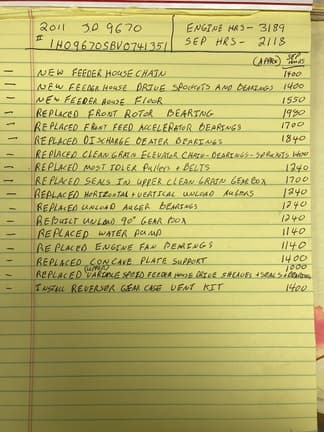 2011 JD 9670 ENGINE HRS- 3189
# 1H09670SBV0741351 SEP HRS- 2118
(APPROX) SEP HOURS
- NEW FEEDER HOUSE CHAIN 1400
- NEW FEEDER HOUSE DRIVE SPROCKETS AND BEARINGS 1400
- NEW FEEDER HOUSE FLOOR 1550
- REPLACED FRONT ROTOR BEARING 1980
- REPLACED FRONT FEED ACCELERATOR BEARINGS 1700
- REPLACED DISCHARGE BEATER BEARINGS 1840
- REPLACED CLEAN GRAIN ELEVATOR CHAIN-BEARINGS-SPROCKETS 1400
- REPLACED MOST IDLER PULLEYS + BELTS 1240
- REPLACED SEALS IN UPPER CLEAN GRAIN GEAR BOX 1700
- REPLACED HORIZONTAL + VERTICAL UNLOAD AUGERS 1240
- REPLACED UNLOAD AUGER BEARINGS 1240
- REBUILT UNLOAD 90° GEAR BOX 1240
- REPLACED WATER PUMP 1140
- REPLACED ENGINE FAN BEARINGS 1140
- REPLACED CONCAVE PLATE SUPPORT 1400
- REPLACED (UPPER) VARIABLE SPEED FEEDER HOUSE DRIVE SHEAVES + SEALS + BEARINGS 1000
- INSTALL REVERSOR GEAR CASE VENT KIT 1400